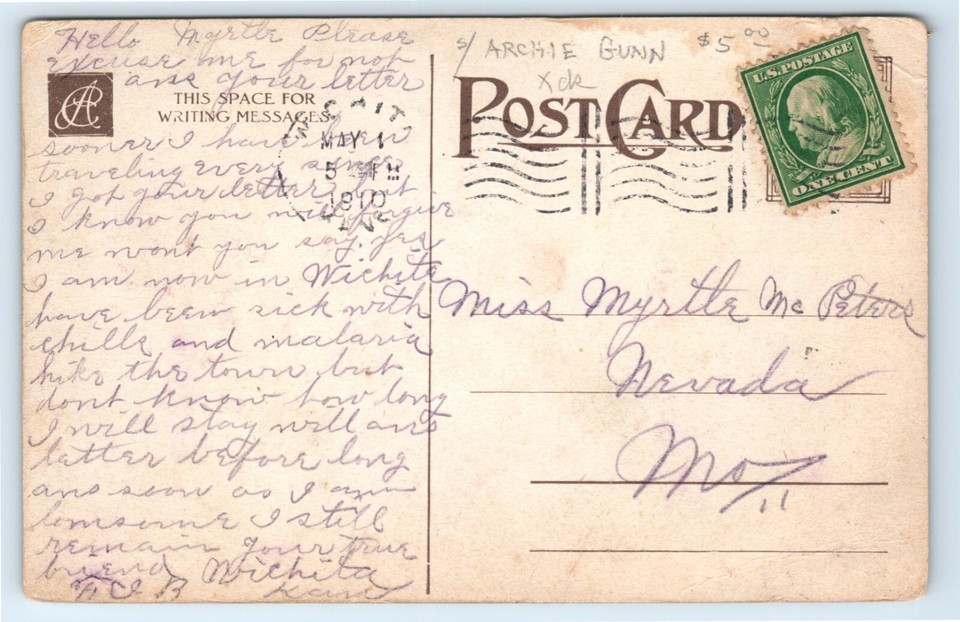 Hello Myrtle Please
excuse me for not
ans your letter
THIS SPACE FOR
WRITING MESSAGES
sooner I have been
traveling every since
I got your letter but
I know you will forgive
me wont you say. Yes
I am now in Wichita
have been sick with
chills and malaria
like the town but
dont know how long
I will stay will ans
letter before long
ans soon as I am
lonsome I still
remain your true
friend Wichita
F. J. B Kans
MAY 1
5 PM
1910
s/ ARCHIE GUNN $5.00
xdk
POST CARD
U.S. POSTAGE
ONE CENT
Miss Myrtle Mc Peters
Nevada
Mo